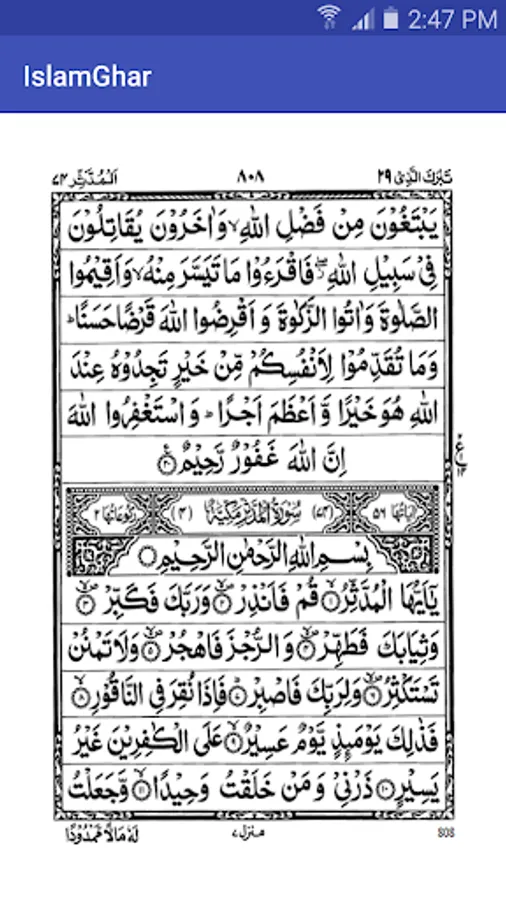 2:47 PM
IslamGhar
تَبٰرَكَ الَّذِیْ ۲۹
۸۰۸
اَلْمُدَّثِّر ۷۴
یَبْتَغُوْنَ مِنْ فَضْلِ اللّٰهِ ۙ وَاٰخَرُوْنَ یُقَاتِلُوْنَ
فِیْ سَبِیْلِ اللّٰهِ ۖ فَاقْرَءُوْا مَا تَیَسَّرَ مِنْهُ ۙ وَاَقِیْمُوا
الصَّلٰوةَ وَاٰتُوا الزَّكٰوةَ وَ اَقْرِضُوا اللّٰهَ قَرْضًا حَسَنًا ؕ
وَمَا تُقَدِّمُوْا لِاَنْفُسِكُمْ مِّنْ خَیْرٍ تَجِدُوْهُ عِنْدَ
اللّٰهِ هُوَ خَیْرًا وَّ اَعْظَمَ اَجْرًا ؕ وَ اسْتَغْفِرُوا اللّٰهَ
اِنَّ اللّٰهَ غَفُوْرٌ رَّحِیْمٌ ۝۲۰
اٰیَاتُهَا ۵۶ (۷۴) سُوْرَةُ الْمُدَّثِّرِ مَكِّیَّةٌ (۴) رُكُوْعَاتُهَا ۲
بِسْمِ اللّٰهِ الرَّحْمٰنِ الرَّحِیْمِ ۝
یٰۤاَیُّهَا الْمُدَّثِّرُ ۝۱ قُمْ فَاَنْذِرْ ۝۲ وَرَبَّكَ فَكَبِّرْ ۝۳
وَثِیَابَكَ فَطَهِّرْ ۝۴ وَ الرُّجْزَ فَاهْجُرْ ۝۵ وَلَا تَمْنُنْ
تَسْتَكْثِرُ ۝۶ وَلِرَبِّكَ فَاصْبِرْ ۝۷ فَاِذَا نُقِرَ فِی النَّاقُوْرِ ۝۸
فَذٰلِكَ یَوْمَىِٕذٍ یَّوْمٌ عَسِیْرٌ ۝۹ عَلَی الْكٰفِرِیْنَ غَیْرُ
یَسِیْرٍ ۝۱۰ ذَرْنِیْ وَ مَنْ خَلَقْتُ وَحِیْدًا ۝۱۱ وَّجَعَلْتُ
808
منزل ۷
لَهٗ مَالًا مَّمْدُوْدًا